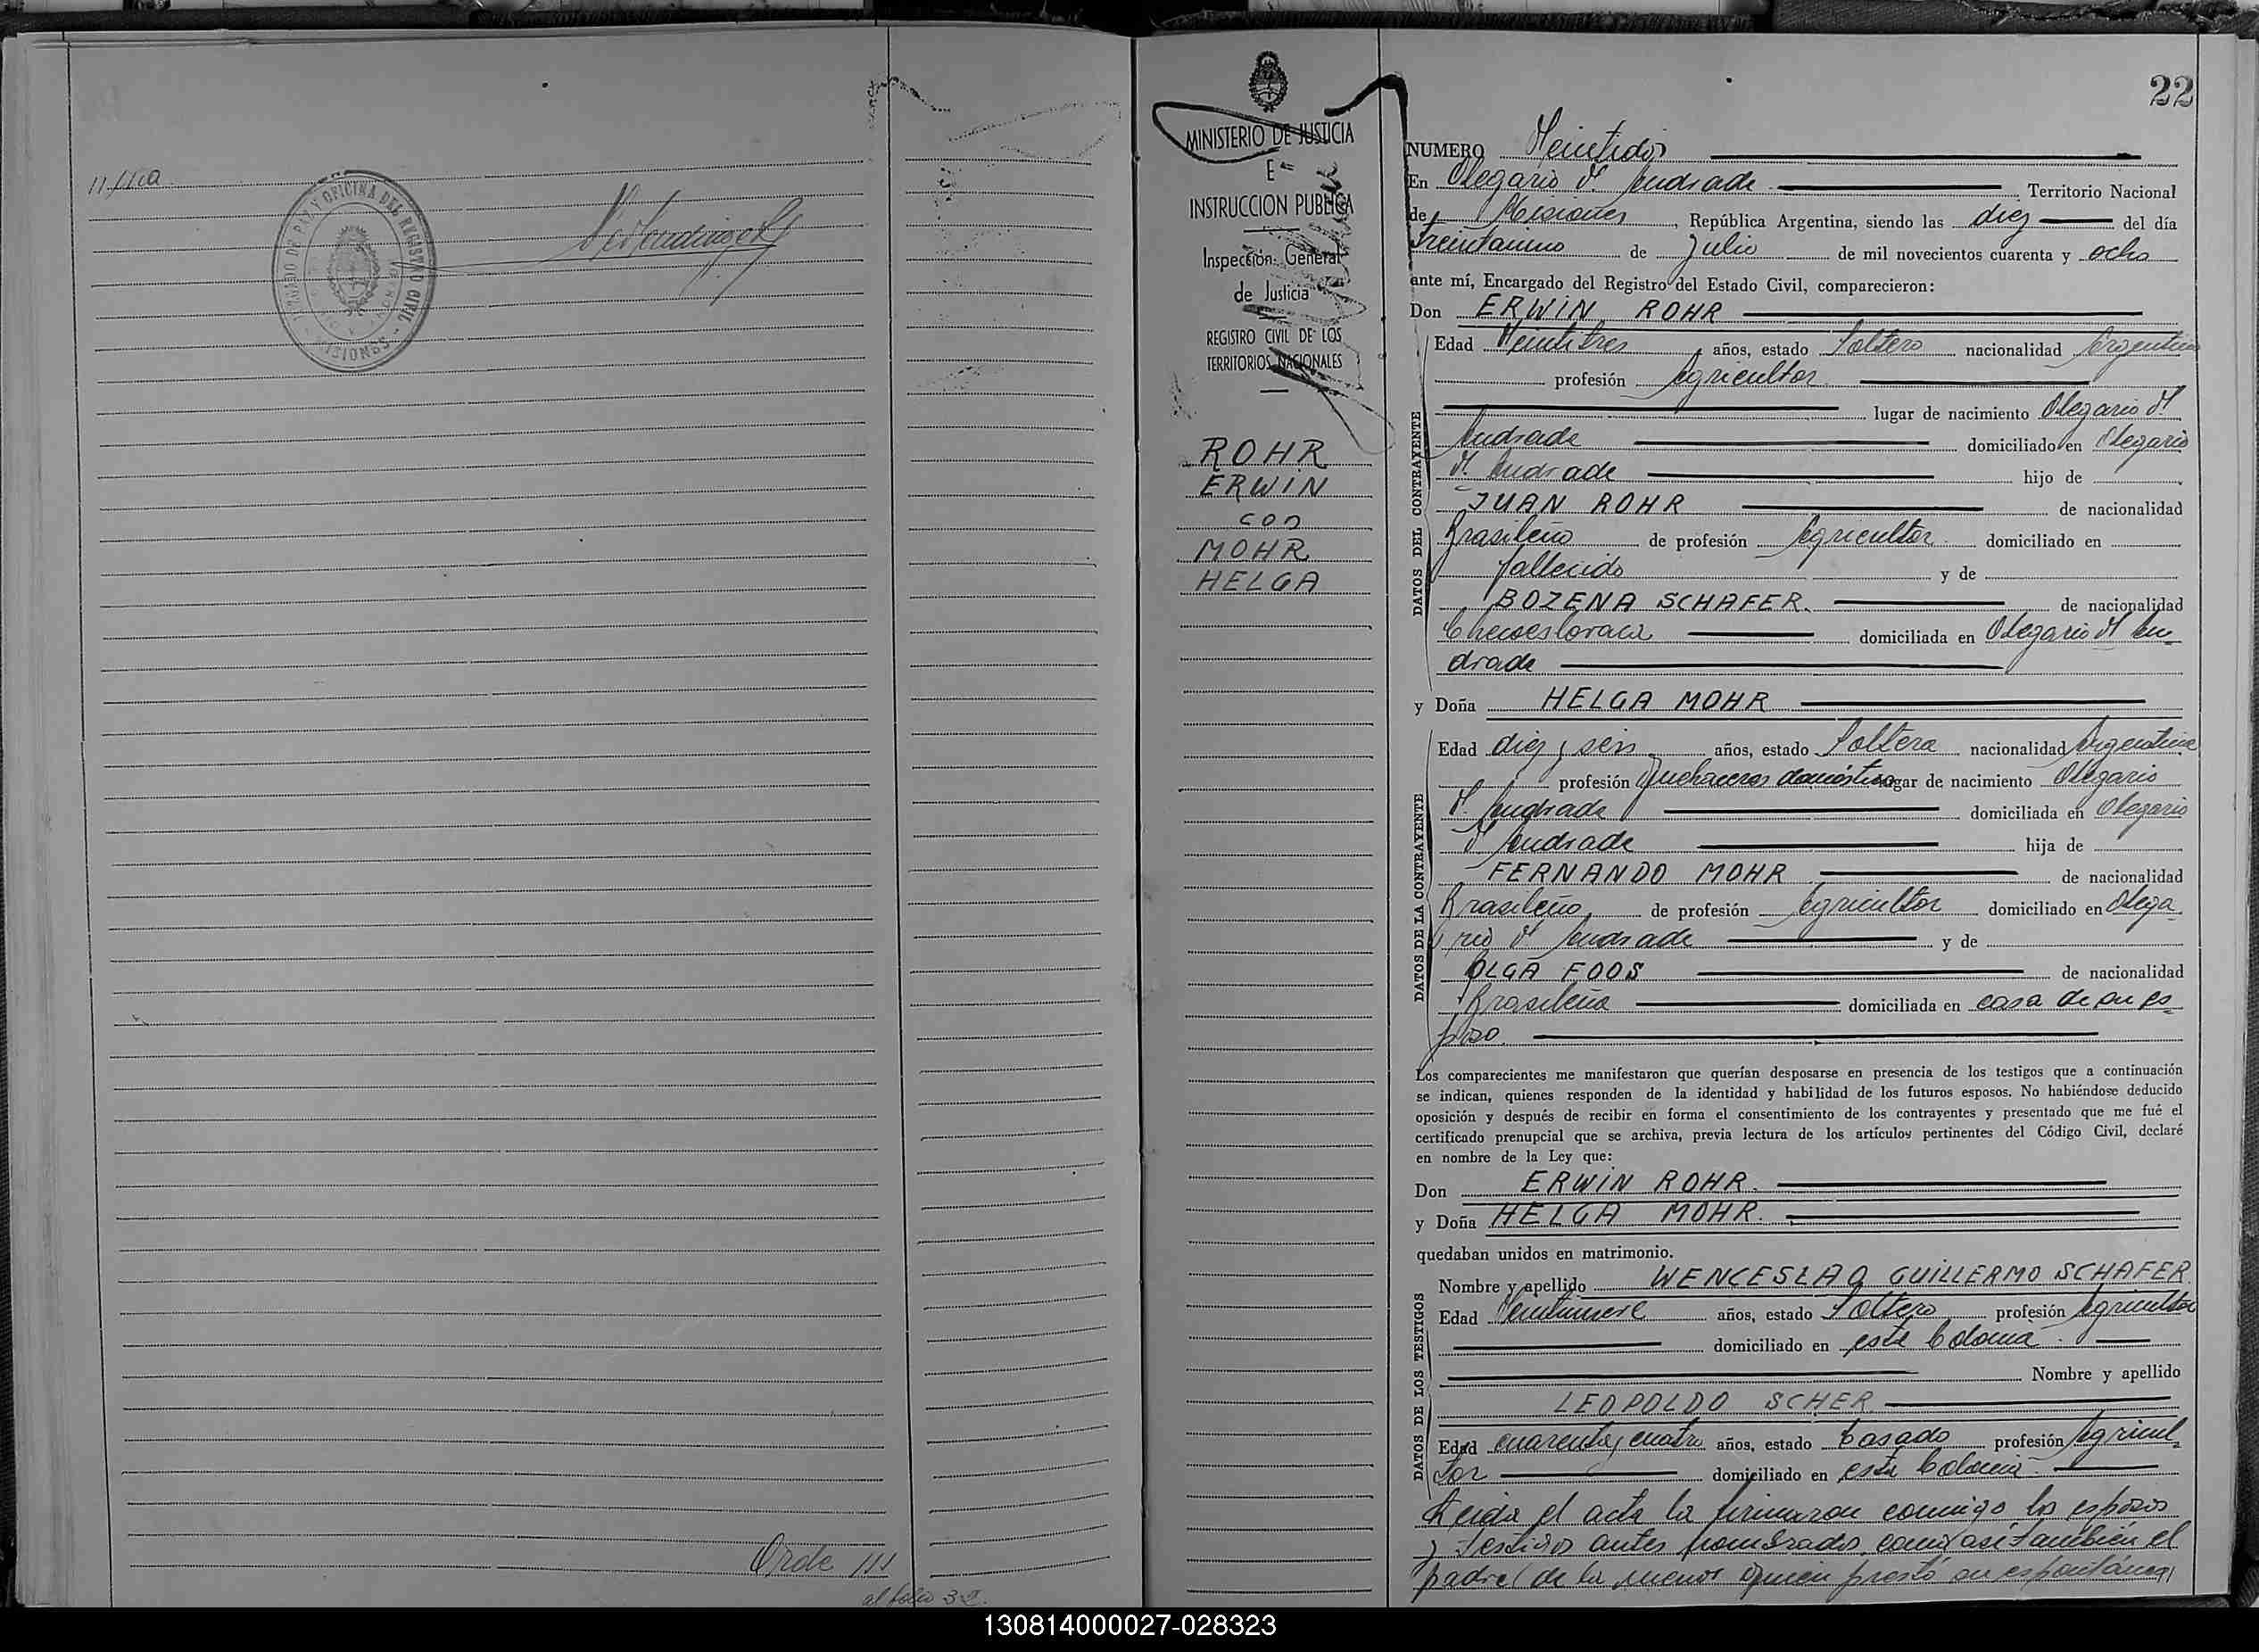 JUZGADO DE PAZ Y OFICINA DEL REGISTRO CIVIL
MISIONES
al folio 32.
MINISTERIO DE JUSTICIA
E
INSTRUCCION PUBLICA
Inspección General
de Justicia
REGISTRO CIVIL DE LOS
TERRITORIOS NACIONALES
ROHR
ERWIN
con
MOHR
HELGA
22
NUMERO Veintidos
En Olegario V. Andrade Territorio Nacional
de Misiones, República Argentina, siendo las diez del día
Treintaiuno de Julio de mil novecientos cuarenta y ocho
ante mí, Encargado del Registro del Estado Civil, comparecieron:
Don ERWIN ROHR
DATOS DEL CONTRAYENTE
Edad Veintitres años, estado Soltero nacionalidad Argentino
profesión Agricultor
lugar de nacimiento Olegario V.
Andrade domiciliado en Olegario
V. Andrade hijo de
JUAN ROHR de nacionalidad
Brasileño de profesión Agricultor domiciliado en
fallecido y de
BOZENA SCHAFER. de nacionalidad
Checoeslovaca domiciliada en Olegario V. An-
drade
y Doña HELGA MOHR
DATOS DE LA CONTRAYENTE
Edad diez y seis años, estado Soltera nacionalidad Argentina
profesión Quehaceres domésticos lugar de nacimiento Olegario
V. Andrade domiciliada en Olegario
V. Andrade hija de
FERNANDO MOHR de nacionalidad
Brasileño de profesión Agricultor domiciliado en Olega-
rio V. Andrade y de
OLGA FOOS de nacionalidad
Brasileña domiciliada en casa de su es-
poso.
Los comparecientes me manifestaron que querían desposarse en presencia de los testigos que a continuación
se indican, quienes responden de la identidad y habilidad de los futuros esposos. No habiéndose deducido
oposición y después de recibir en forma el consentimiento de los contrayentes y presentado que me fué el
certificado prenupcial que se archiva, previa lectura de los artículos pertinentes del Código Civil, declaré
en nombre de la Ley que:
Don ERWIN ROHR.
y Doña HELGA MOHR.
quedaban unidos en matrimonio.
DATOS DE LOS TESTIGOS
Nombre y apellido WENCESLAO GUILLERMO SCHAFER.
Edad Veintinueve años, estado Soltero profesión Agricultor
domiciliado en esta Colonia.
Nombre y apellido
LEOPOLDO SCHER.
Edad cuarenta y cuatro años, estado Casado profesión Agricul-
tor domiciliado en esta Colonia.
Leida el acta la firmaron conmigo los esposos
y testigos antes nombrados, como asi también el
padre de la menor quien prestó su espontánea
130814000027-028323